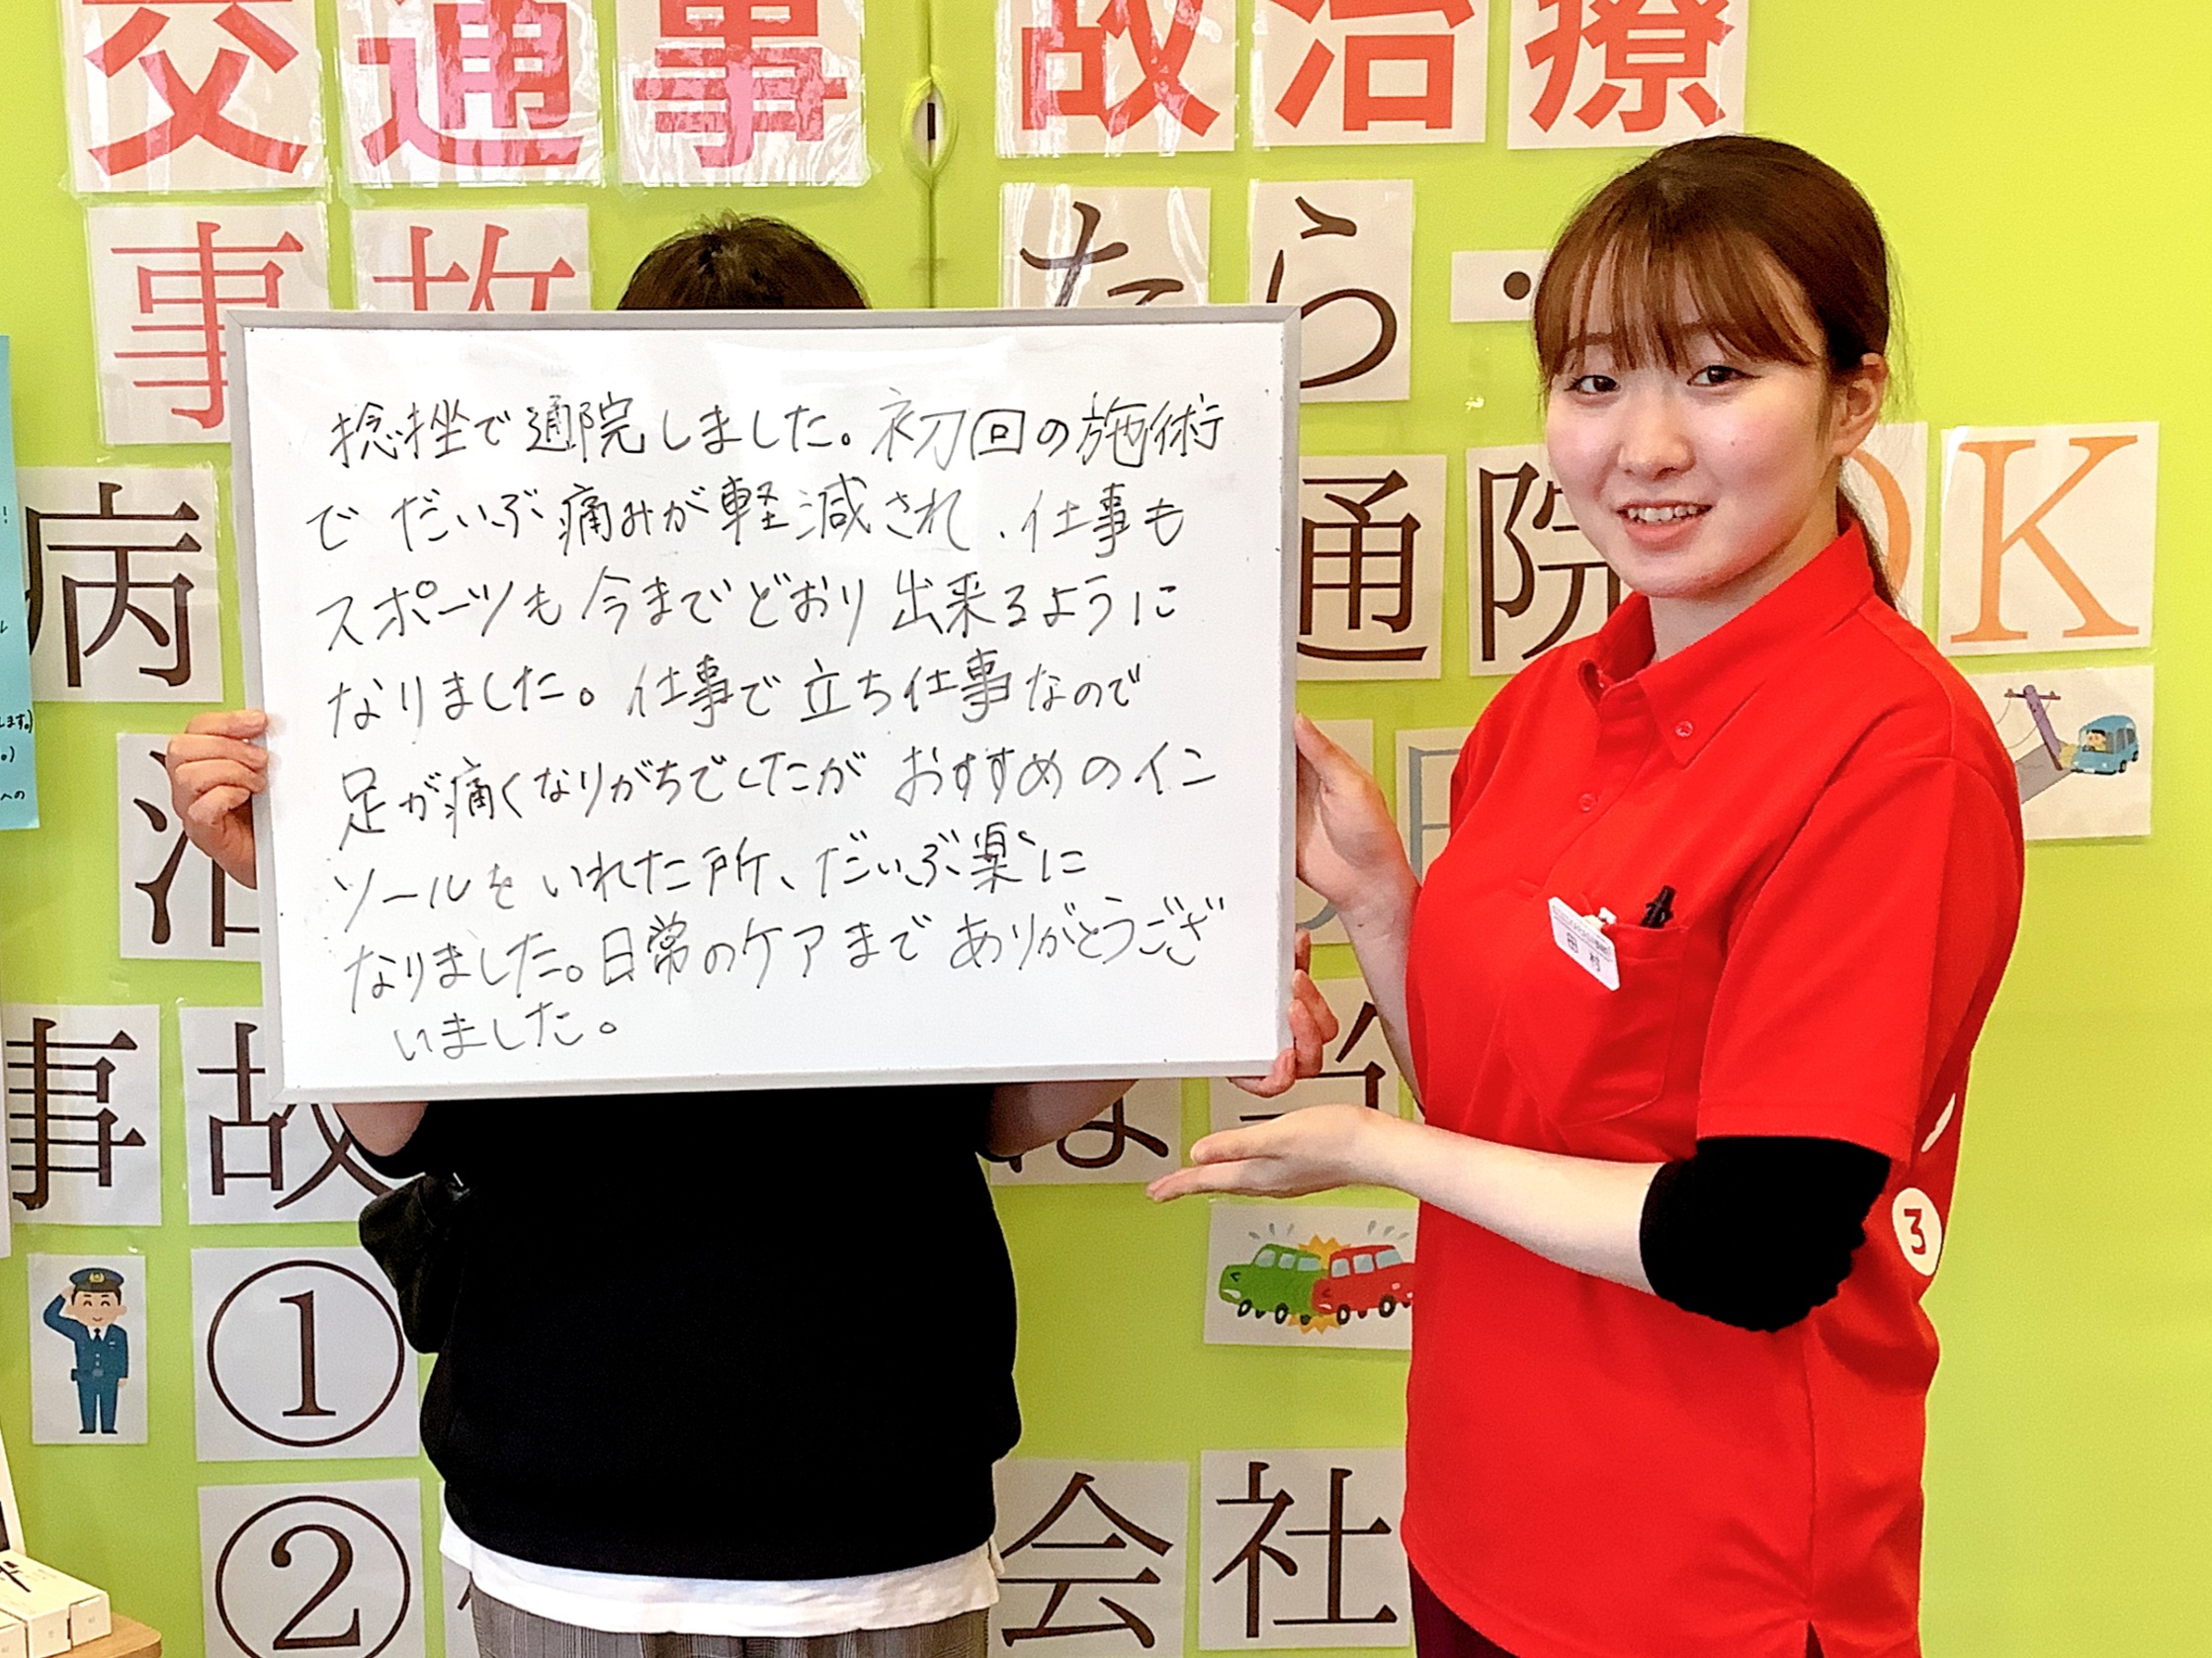 交通事故治療
事故
なら・
病
通院OK
捻挫で通院しました。初回の施術
でだいぶ痛みが軽減され、仕事も
スポーツも今までどおり出来るように
なりました。仕事で立ち仕事なので
足が痛くなりがちでしたがおすすめのイン
ソールをいれた所、だいぶ楽に
なりました。日常のケアまでありがとうござ
いました。
田村
事故
は
3
①
②
会社